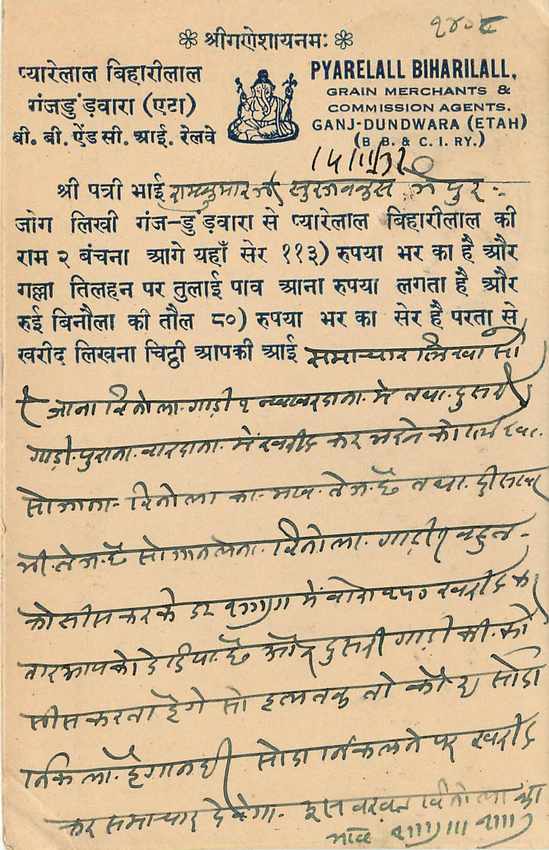 १४०८
❀ श्रीगणेशायनमः ❀
प्यारेलाल बिहारीलाल
गंजडुंडवारा (एटा)
बी. बी. ऐंड सी. आई. रेलवे
PYARELALL BIHARILALL,
GRAIN MERCHANTS &
COMMISSION AGENTS.
GANJ-DUNDWARA (ETAH)
(B. B. & C. I. RY.)
श्री पत्री भाई रामकुमार जी सुरजबकस जैपुर
जोग लिखी गंज-डुंडवारा से प्यारेलाल बिहारीलाल की
राम २ बंचना आगे यहाँ सेर ११३) रुपया भर का है और
गल्ला तिलहन पर तुलाई पाव आना रुपया लगता है और
रुई बिनौला की तौल ८०) रुपया भर का सेर है परता से
खरीद लिखना चिट्ठी आपकी आई समाचार लिखा सो
जाना बिनोला गाडी १ में तथा दुसरी
गाडी पुराना बारदाना में खरीद कर भरने को
सो जाना बिनोला का भाव तेज है तथा
भी तेज है सो जान लेना बिनोला गाडी १ बहुत
कोसीस करके में बोरा २५० खरीद कर
तार आपको दे दिया है और दुसरी गाडी की को
सीस करता हैगे सो तक तो कोइ सोदा
हैगा नही सोदा निकलने पर खरीद
कर समाचार देवेगा इस बखत बिनोला का
भाव